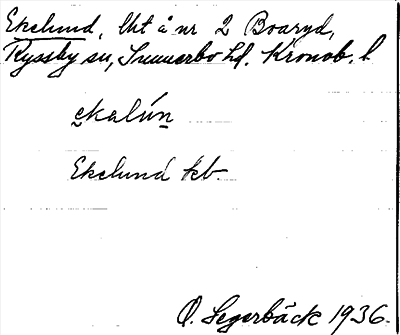 Ekelund, lht å nr 2 Boaryd,
Ryssby sn, Sunnerbo hd. Kronob. l
ekalún
Ekelund kb.
O. Segerbäck 1936.